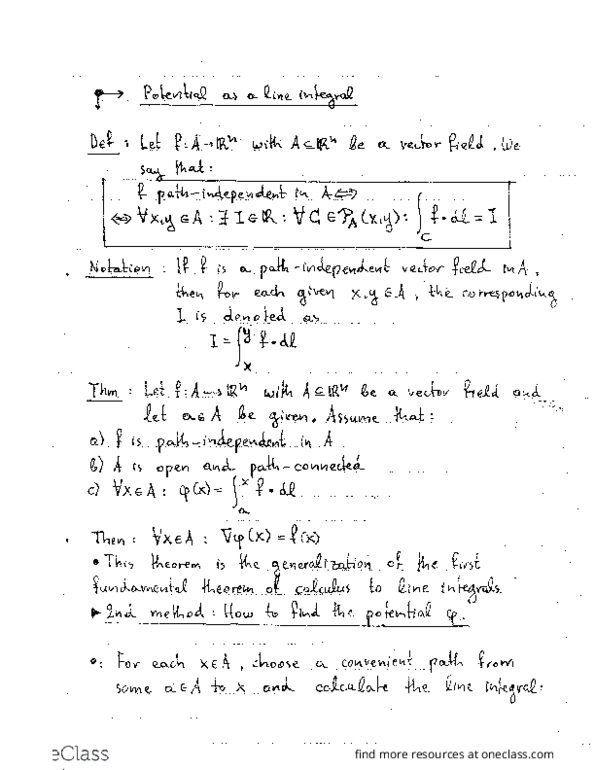 Potential as a line integral
Def : Let f:A→ℝⁿ with A⊆ℝⁿ be a vector field. We
say that:
f path-independent in A ⇔
⇔ ∀x,y∈A : ∃I∈ℝ : ∀C∈𝒫_A(x,y): ∫_C f·dl = I
Notation : If f is a path-independent vector field in A,
then for each given x,y∈A, the corresponding
I is denoted as
I = ∫_x^y f·dl
Thm : Let f:A→ℝⁿ with A⊆ℝⁿ be a vector field and
let a∈A be given. Assume that:
a) f is path-independent in A
b) A is open and path-connected
c) ∀x∈A : φ(x) = ∫_a^x f·dl
Then : ∀x∈A : ∇φ(x) = f(x)
• This theorem is the generalization of the first
fundamental theorem of calculus to line integrals.
► 2nd method : How to find the potential φ.
•: For each x∈A, choose a convenient path from
some a∈A to x and calculate the line integral:
eClass
find more resources at oneclass.com